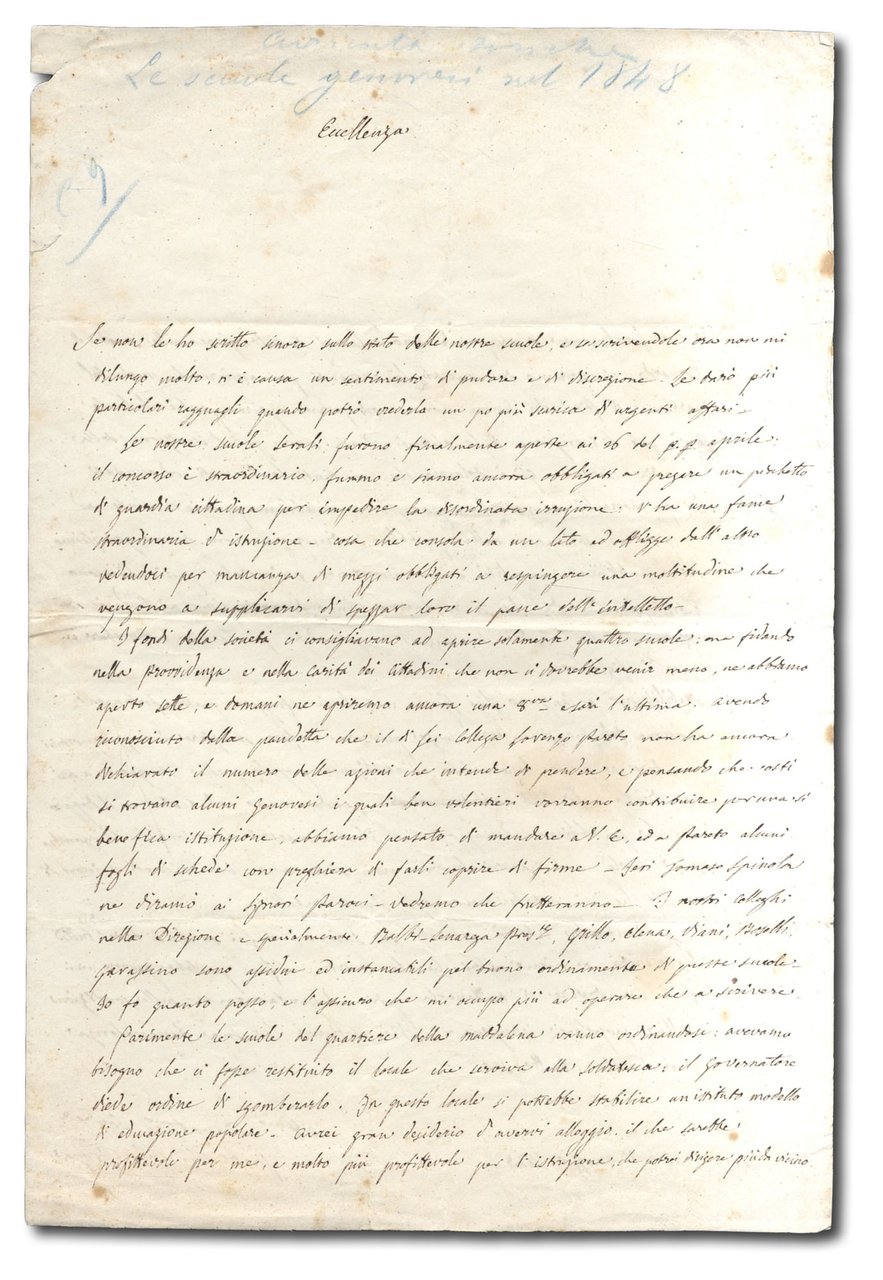 Le scuole genovesi nel 1848
Eccellenza
Se non le ho scritto sinora sullo stato delle nostre scuole, e se scrivendole ora non mi
dilungo molto, n'è causa un sentimento di pudore e di discrezione. Le darò più
particolari ragguagli quando potrò vederla un po più scarica di urgenti affari –
Le nostre scuole serali furono finalmente aperte ai 26 del p. p. aprile.
il concorso è straordinario, fummo e siamo ancora obbligati a pregare un picchetto
di guardia cittadina per impedire la disordinata irruzione: v'ha una fame
straordinaria d'istruzione – cosa che consola da un lato ed affligge dall'altro
vedendoci per mancanza di mezzi obbligati a respingere una moltitudine che
vengono a supplicarvi di spezzar loro il pane dell'intelletto –
I fondi della società ci consigliavano ad aprire solamente quattro scuole: ma fidando
nella Provvidenza e nella carità dei Cittadini che non ci dovrebbe venir meno, ne abbiamo
aperto sette, e domani ne apriremo ancora una 8va e sarà l'ultima. avendo
riconosciuto dalla pandetta che il di Lei Collega Lorenzo Pareto non ha ancora
dichiarato il numero delle azioni che intende di prendere, e pensando che costì
si trovano alcuni Genovesi i quali ben volentieri vorranno contribuire per una sì
benefica istituzione, abbiamo pensato di mandare a V. E. ed a Pareto alcuni
fogli di schede con preghiera di farli coprire di firme – Ieri Tomaso Spinola
ne diramò ai Signori Paroci – vedremo che frutteranno – I nostri colleghi
nella Direzione e specialmente Balbi-Senarega, Grillo, Elena, Viani, Boselli,
Garassino sono assidui ed instancabili pel buono ordinamento di queste scuole –
Io fo quanto posso, e l'assicuro che mi occupo più ad operare che a scrivere
Parimente le scuole del quartiere della Maddalena vanno ordinandosi: avevamo
bisogno che ci fosse restituito il locale che serviva alla soldatesca; il Governatore
diede ordine di sgomberarlo. In questo locale si potrebbe stabilire un istituto modello
di educazione popolare – avrei gran desiderio d'avervi alloggio, il che sarebbe
profittevole per me, e molto più profittevole per l'istruzione, che potrei dirigere più da vicino